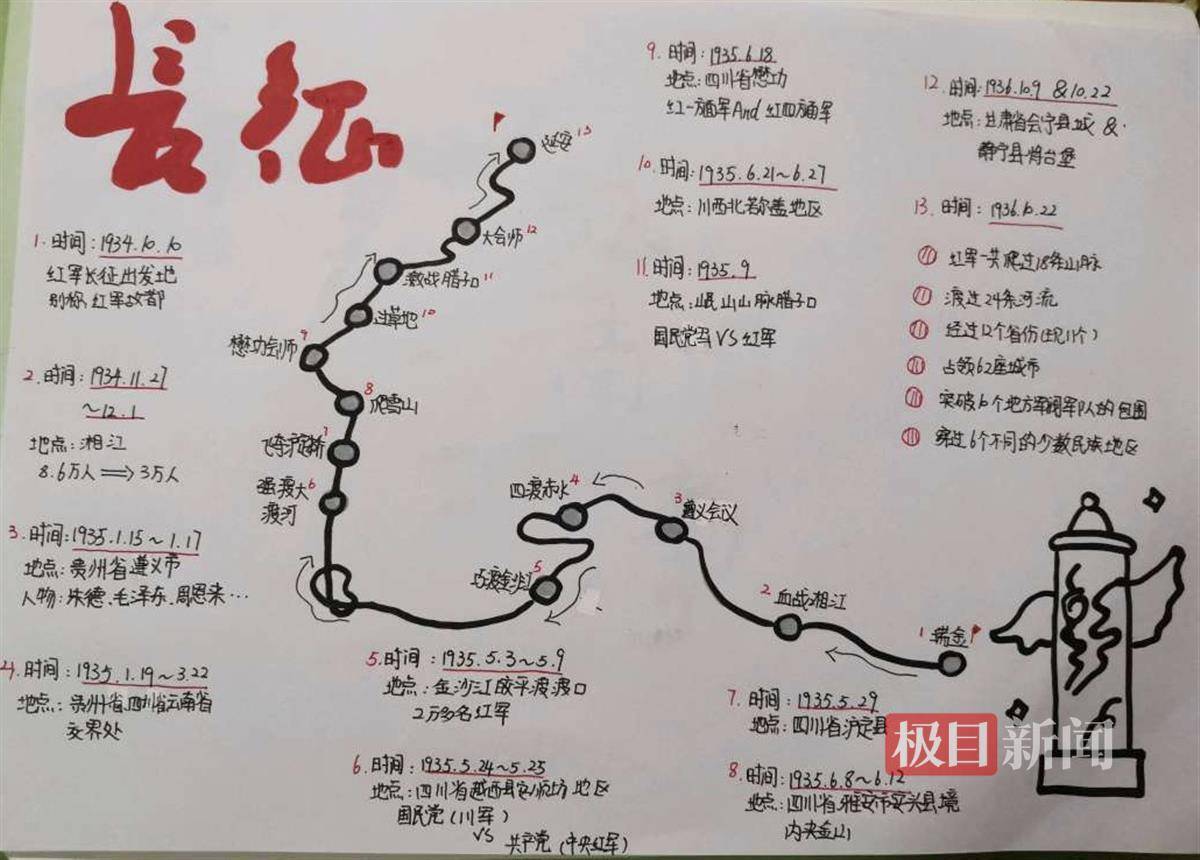 長征
1. 时间:1934.10.10
红军长征出发地
别称:红军故都
2. 时间:1934.11.27
~12.1
地点:湘江
8.6万人 ⟹ 3万人
3. 时间:1935.1.15~1.17
地点:贵州省遵义市
人物:朱德、毛泽东、周恩来…
4. 时间:1935.1.19~3.22
地点:贵州省、四川省、云南省
交界处
5. 时间:1935.5.3~5.9
地点:金沙江皎平渡渡口
2万多名红军
6. 时间:1935.5.24~5.25
地点:四川省越西县安顺场地区
国民党(川军)
VS 共产党(中央红军)
7. 时间:1935.5.29
地点:四川省泸定县
8. 时间:1935.6.8~6.12
地点:四川省雅安市安兴县境
内夹金山
9. 时间:1935.6.18
地点:四川省懋功
红一方面军And红四方面军
10. 时间:1935.6.21~6.27
地点:川西北若尔盖地区
11. 时间:1935.9
地点:岷山山脉腊子口
国民党军VS红军
12. 时间:1936.10.9 &10.22
地点:甘肃省会宁县城 &
静宁县将台堡
13. 时间:1936.10.22
红军一共爬过18条山脉
渡过24条河流
经过12个省份(现11个)
占领62座城市
突破10个地方军阀军队的包围
穿过6个不同的少数民族地区
延安 13
大会师 12
激战腊子口 11
过草地 10
懋功会师 9
8 爬雪山
飞夺泸定桥 7
强渡大 6
渡河
巧渡金沙江 5
四渡赤水 4
3 遵义会议
2 血战湘江
1 瑞金
极目新闻